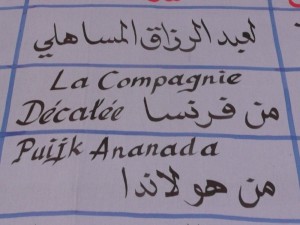 لعبد الرزاق المساهلي
La Compagnie
Décalée من فرنسا
Puijk Ananada
من هولاندا